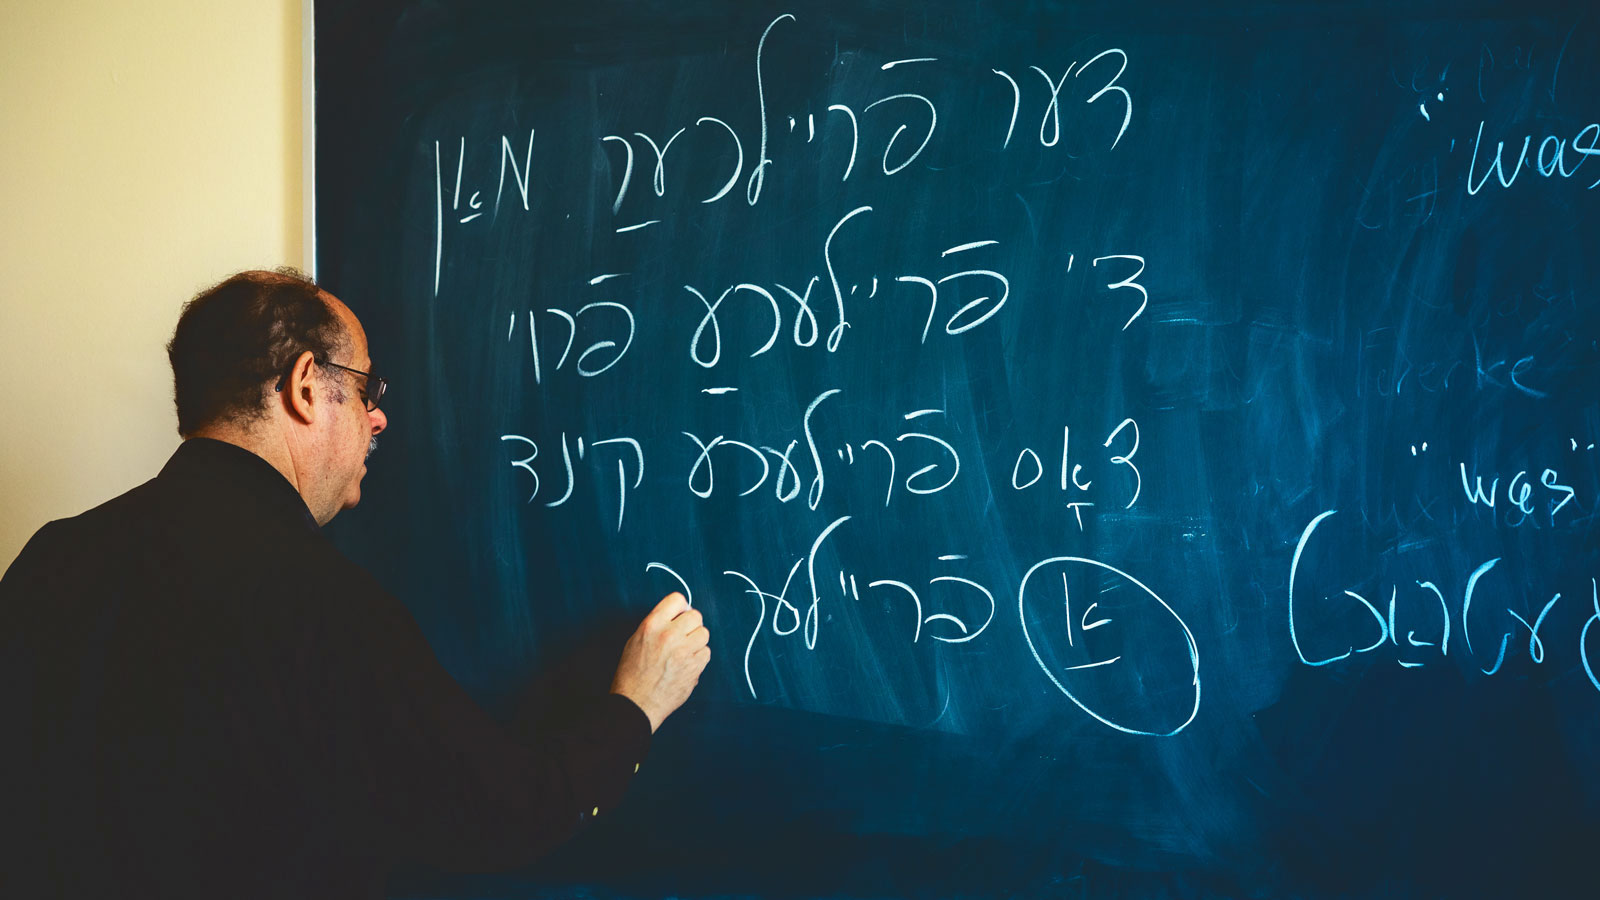 דער פֿריילעכער מאַן
די פֿריילעכע פֿרוי
דאָס פֿריילעכע קינד
אַ פֿריילעך
"was
"was"